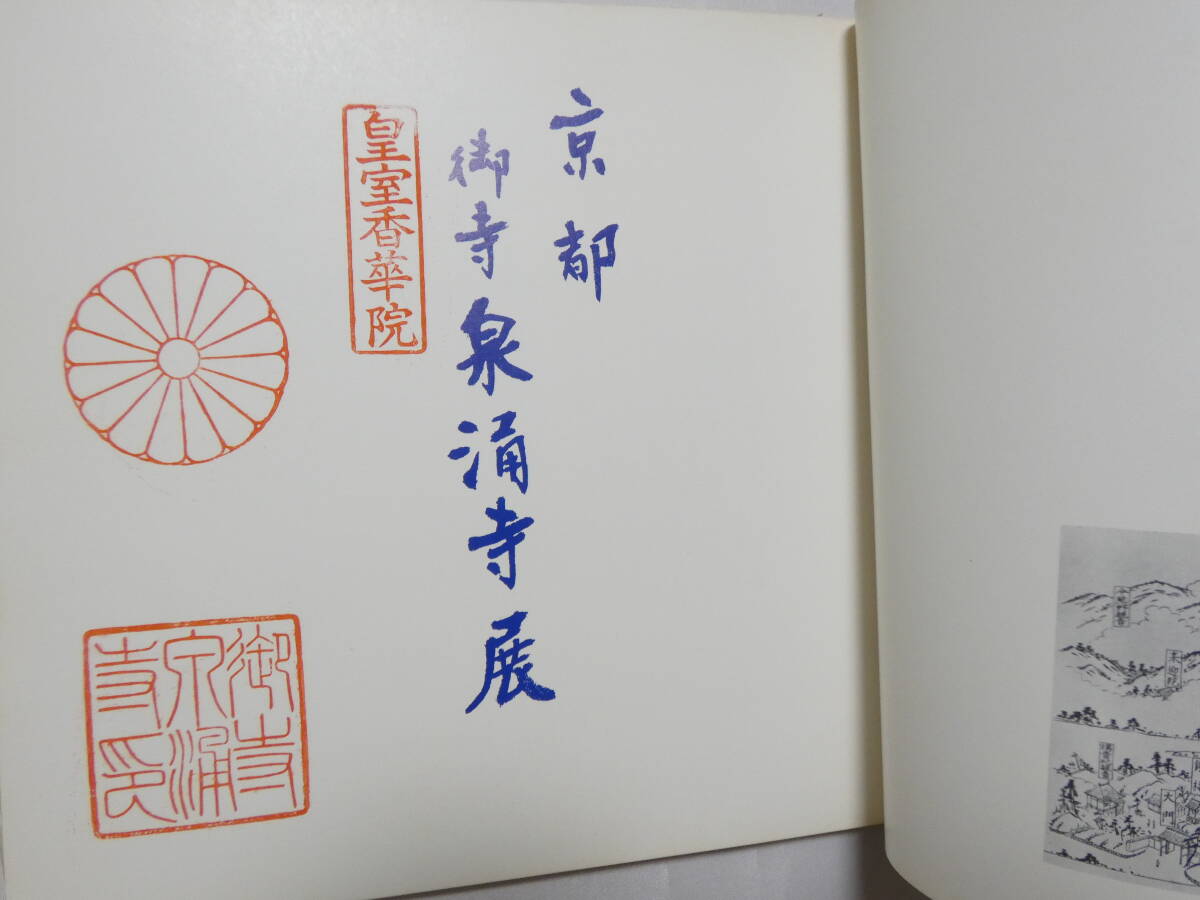 京都
御寺泉涌寺展
皇室香華院
御寺
泉涌
寺印
大門